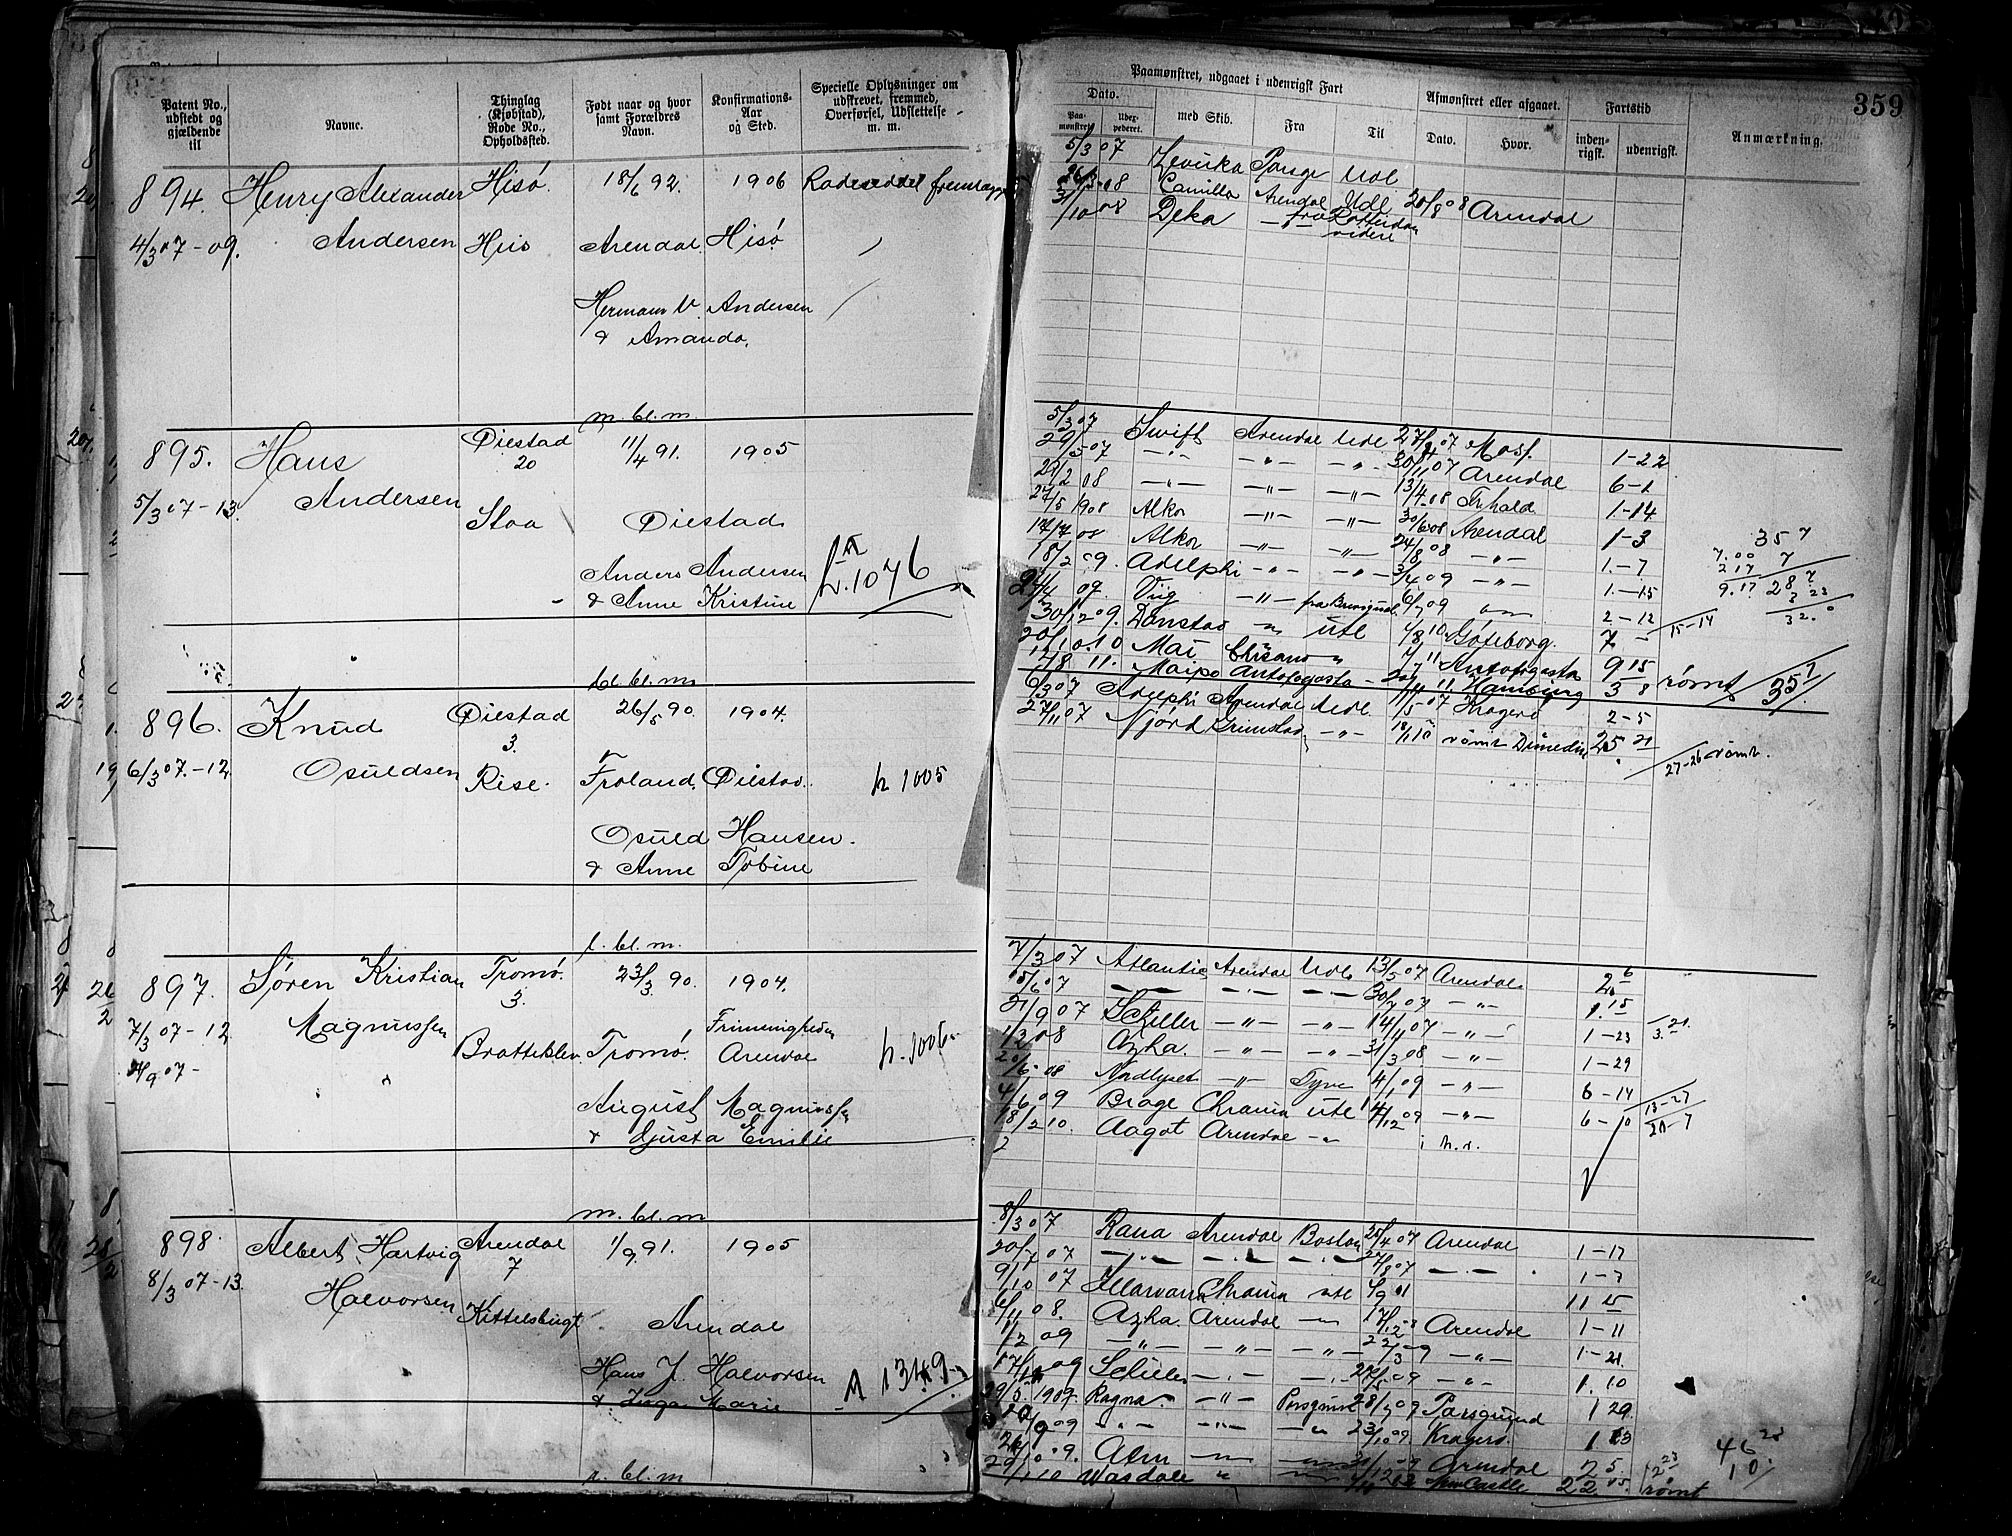 359
Patent No., udstedt og gjældende til
Navne.
Thinglag (Kjøbstad), Rode No., Opholdssted.
Født naar og hvor samt Forældres Navn.
Konfirmations-Aar og Sted.
Specielle Oplysninger om udskrevet, fremmed, Overførsel, Udslettelse m. m.
Paamønstret, udgaaet i udenrigsk Fart
Dato.
Paamønstret.
Udexpederet.
med Skib.
Fra
Til
Afmønstret eller afgaaet.
Dato.
Hvor.
Fartstid
indenrigsk.
udenrigsk.
Anmærkning.
894. Henry Alexander Hisø. 18/6 92. 1906
4/3 07 - 09. Andersen Hisø Arendal Hisø
Hermann V. Andersen
& Amanda.
5/3 07 Levuka Porsgr Udl
26/3 08 Camilla Arendal Udl 20/8 08 Arendal
31/10 08 Deka fra Rotterdam
videre
m. bl. m.
895. Hans Øiestad 11/4 91. 1905
20
5/3 07 - 13. Andersen Stoa Øiestad
Anders Andersen
& Anne Kristine
L. 1076
5/3 07 Swift Arendal Udl 27/4 07 Moss. 1-22
29/5 07 -"- -"- -"- 30/11 07 Arendal 6-1
29/2 08 -"- -"- -"- 13/4 08 Frhald 1-14
27/5 1908 Alkor -"- -"- 30/6 08 Arendal 1-3
17/7 08 Alkor -"- -"- 24/8 08 -"- 1-7
18/2 09. Adelphi -"- -"- 3/4 09 -"- 1-15
24/4 09. Viig -"- 6/7 09 2-12
15-14
30/12 09. Donstad " ute 4/8 10 Göteborg. 7 -
20/10 10 Mai 7/7 11 Antofagasta 9 15 rømt
12/8 11. Maipo Antofagasta - 11 Hamburg 3 8
357
7
7.00
2 17
9.17
28 7
3 23
32. 0
35 7
bl. bl. m.
896. Knud Øiestad 26/5 90. 1904.
3.
6/3 07. - 12. Osuldsen Rise. Froland. Øiestad. h 1005
Osuld Hansen.
& Anne Tobine
6/3 07 Adelphi Arendal Udl. 11/5 07 Kragerø 2-5
27/11 07 Njord Grimstad -"- 18/1 10 rømt Dunedin 25 21
27-26 rømt.
l. bl. m.
897. Søren Kristian Tromø. 23/3 90. 1904.
3.
7/3 07 - 12. Magnussen Bratteklev Tromø. Frimenigheden
Arendal h. 1006.
August Magnussen
& Gusta Emilie
7/3 07 Atlantic Arendal Udl 13/5 07 Arendal. 2 6
15/6 07 30/7 07 -"- 1. 15
21/9 07 Schiller -"- -"- 14/11 07 -"- 1-23
3. 21.
1/2 08 Azha. -"- -"- 31/3 08 -"- 1-29
20/6 08 Nordlyset -"- Tyne 4/1 09 -"- 6-14
4/6 09 Brage Chrania ute 4/12 09 -"- 6-10
18/2 10. Aagot Arendal -"-
m. bl. m
898. Albert Hartvig Arendal 1/9 91. 1905
7
8/3 07 - 13. Halvorsen Kittelsbugt Arendal
Hans J. Halvorsen
& Inga Marie
A 1349
8/3 07 Rana Arendal Boston 25/4 07 Arendal 1-17
20/7 07 27/8 07 1-7
9/10 07 Illawarra Chrania ute 11 25
6/11 08. Azha. Arendal -"- 17/12 08 Arendal 1-11
1/2 09 -"- -"- -"- 22/3 09 -"- 1-21.
17/4 09 Schiller -"- -"- 27/5 09 -"- 1.10
29/5 1909. Ragna -"- 28/7 09 Porsgrund 1 29.
-"- -"- 23/10 09. Kragerø. 1 23
09. Arendal 25
Wasdale " 22 rømt
46
10
r. bl. m